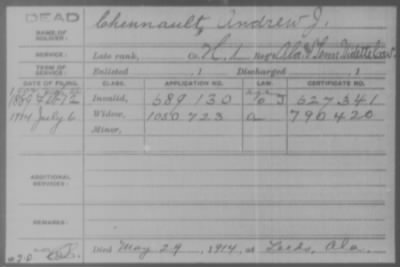 DEAD
NAME OF SOLDIER: Chennault, Andrew J.
SERVICE: Late rank, Co. H. 1 Reg't Ala & Tenn Vidette Cav.
TERM OF SERVICE: Enlisted , 1 Discharged , 1
DATE OF FILING. CLASS. APPLICATION NO. LAW. CERTIFICATE NO.
1889 Invalid, 689 130 627341
1914 July 6 Widow, 1050 723 a 790420
Minor,
ADDITIONAL SERVICES:
REMARKS:
Died May 29, 1914, at Leeds, Ala.